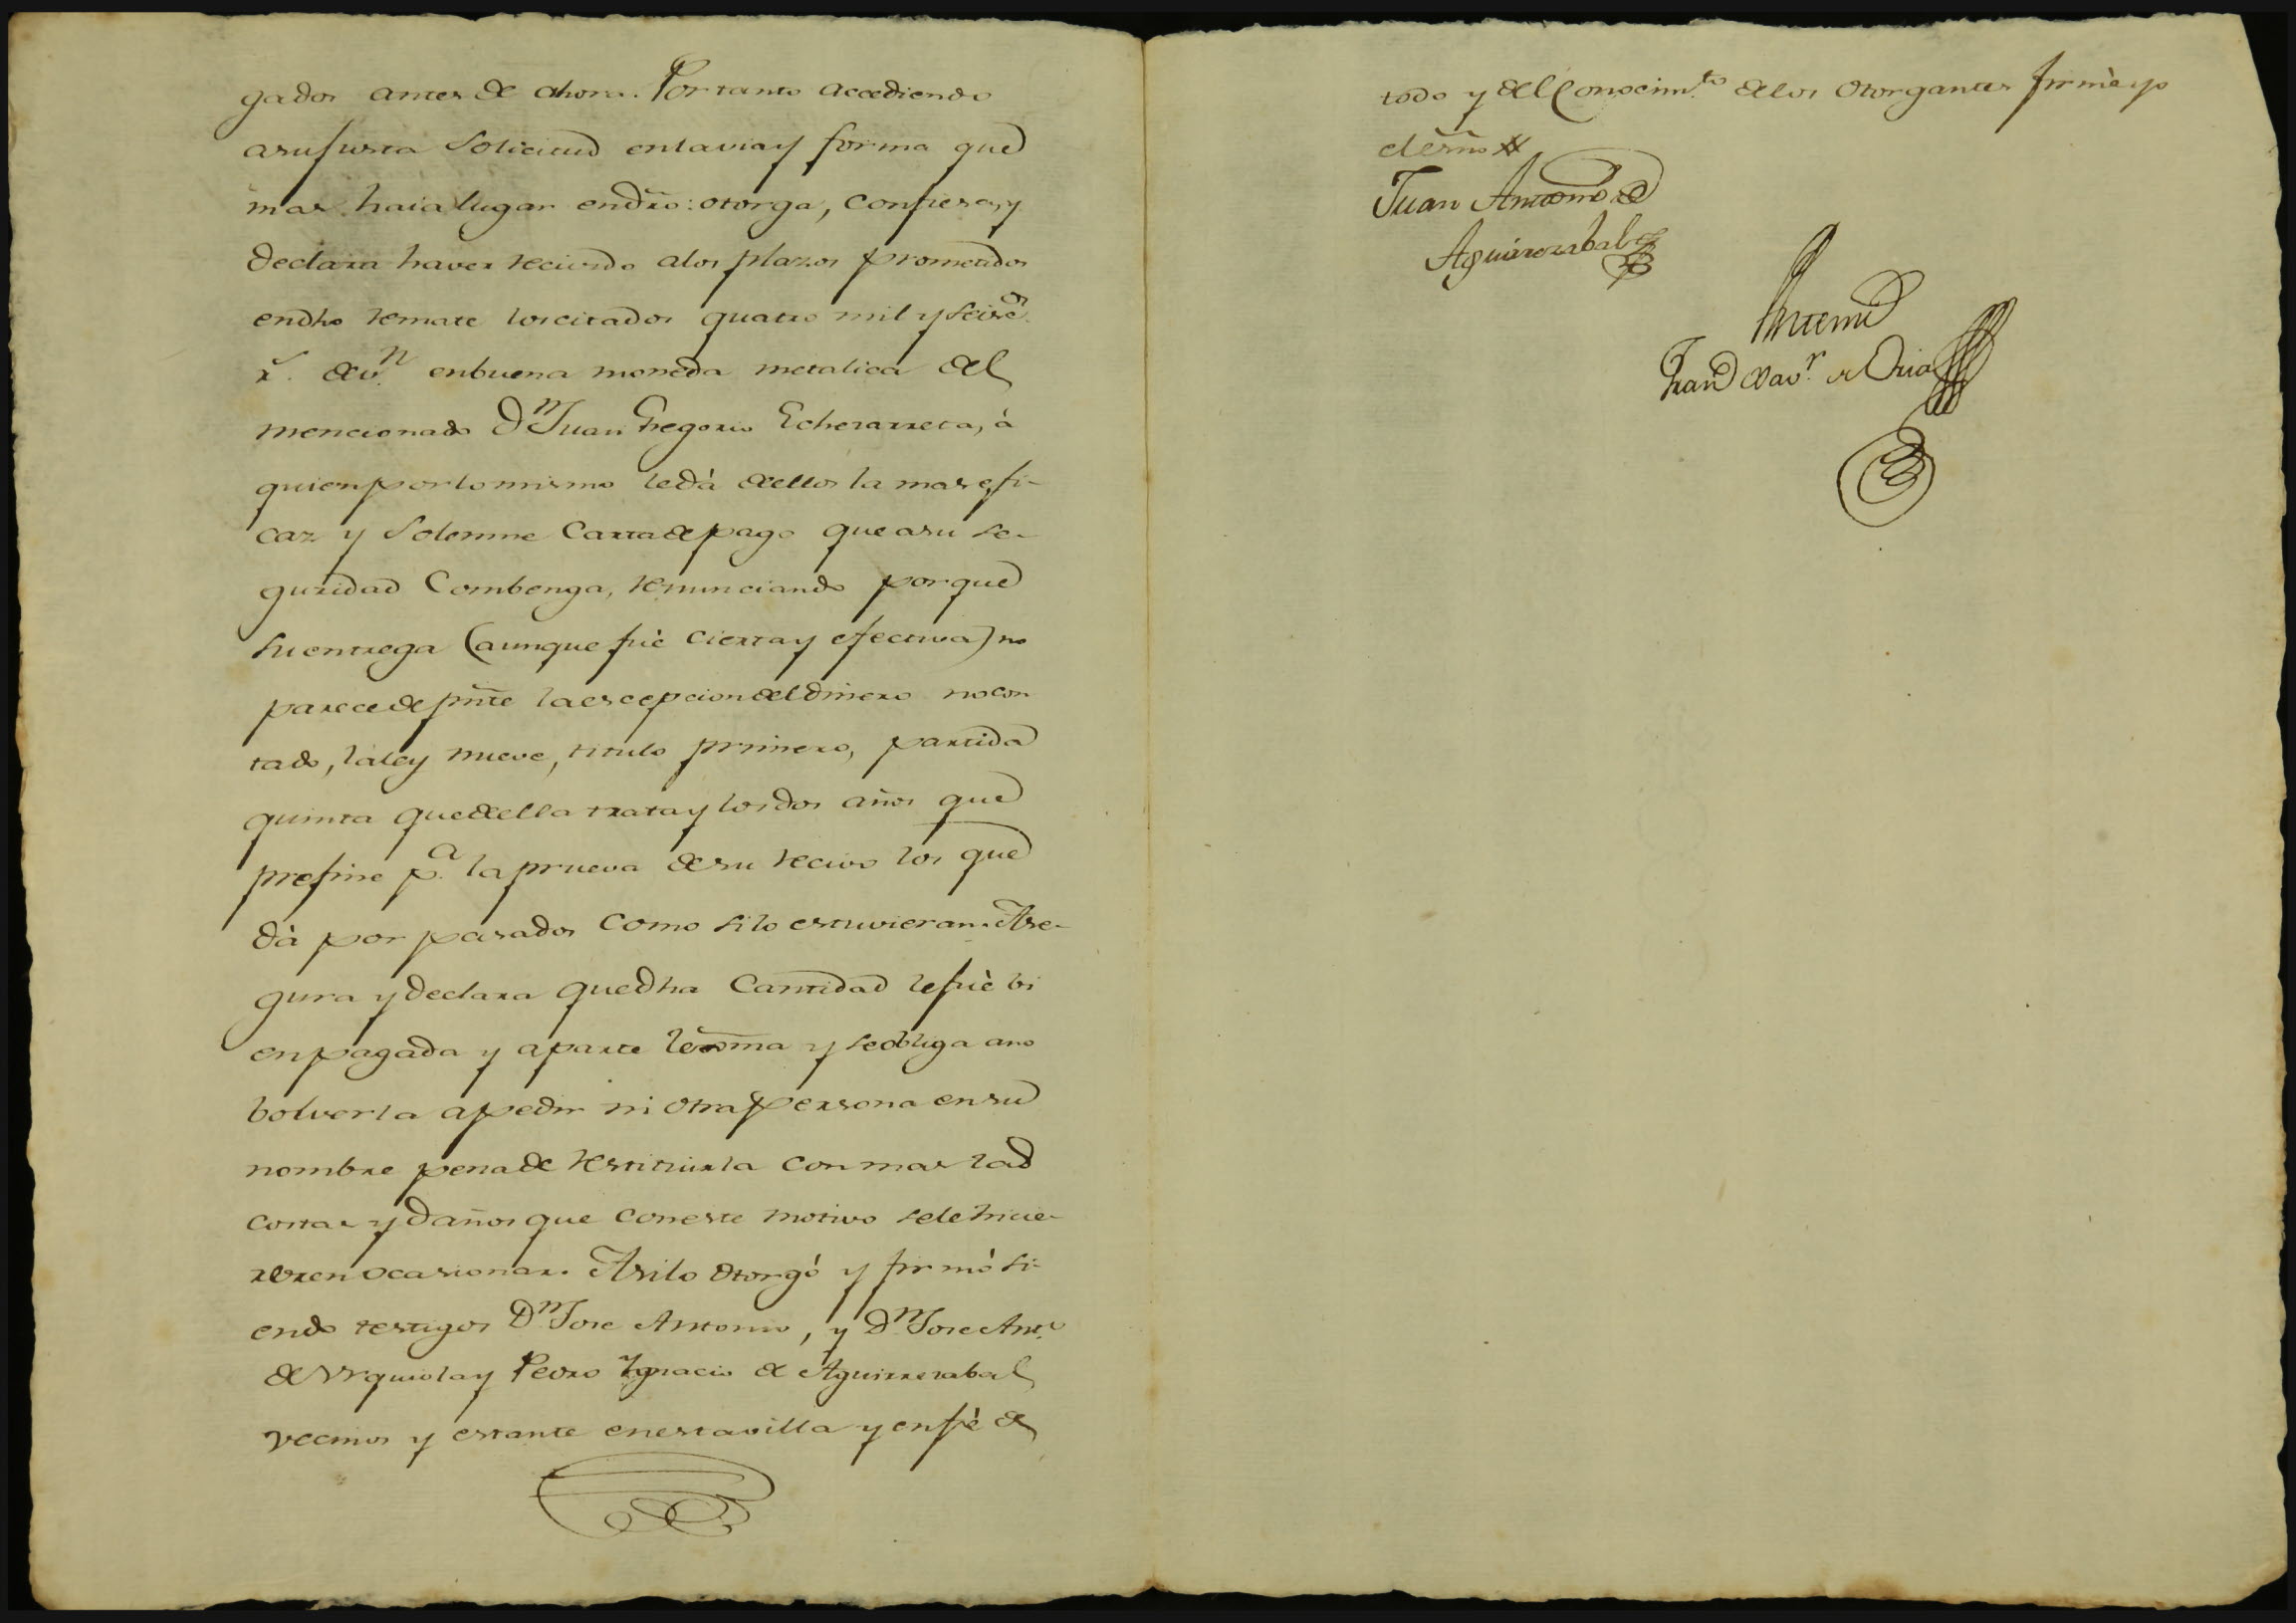 gados antes de ahora. Por tanto accediendo
a su justa Solicitud en la via y forma que
mas haia lugar en dr̃o: otorga, confiesa, y
declara haver recivido a los plazos prometidos
en dho remate los citados quatro mil y seis.os
r.s de v.n en buena moneda metalica del
mencionado D.n Juan Gregorio Echezarreta, à
quien por lo mismo le dà de ellos la mas efi-
caz y Solemne Carta de pago que a su se-
guridad Combenga, renunciando por que
su entrega (aunque fuè cierta y efectiva) no
parece de pnte la escepcion del dinero no con
tado, la ley nueve, titulo primero, partida
quinta que de ella trata y los dos años que
prefine p.a la prueva de su recivo los que
dà por pasados Como si lo estuvieran. Ase-
gura y declara que dha Cantidad le fuè bi
en pagada y a parte lexma y se obliga a no
bolverla a pedir ni otra persona en su
nombre pena de restituirla con mas las
costas y daños que con este motivo se le hicie-
ren ocasionar. Asi lo otorgó y firmó si-
endo testigos D.n Jose Antonio, y D.n Jose Ant.o
de Urquiola y Pedro Ygnacio de Aguirrezabal
vecinos y estante en esta villa y en fè de
todo y del Conocim.to de los Otorgantes firmè yo
el es̃no
Juan Antonio de
Aguirrezabal
Antemi
Fran.co Xav.r de Oria